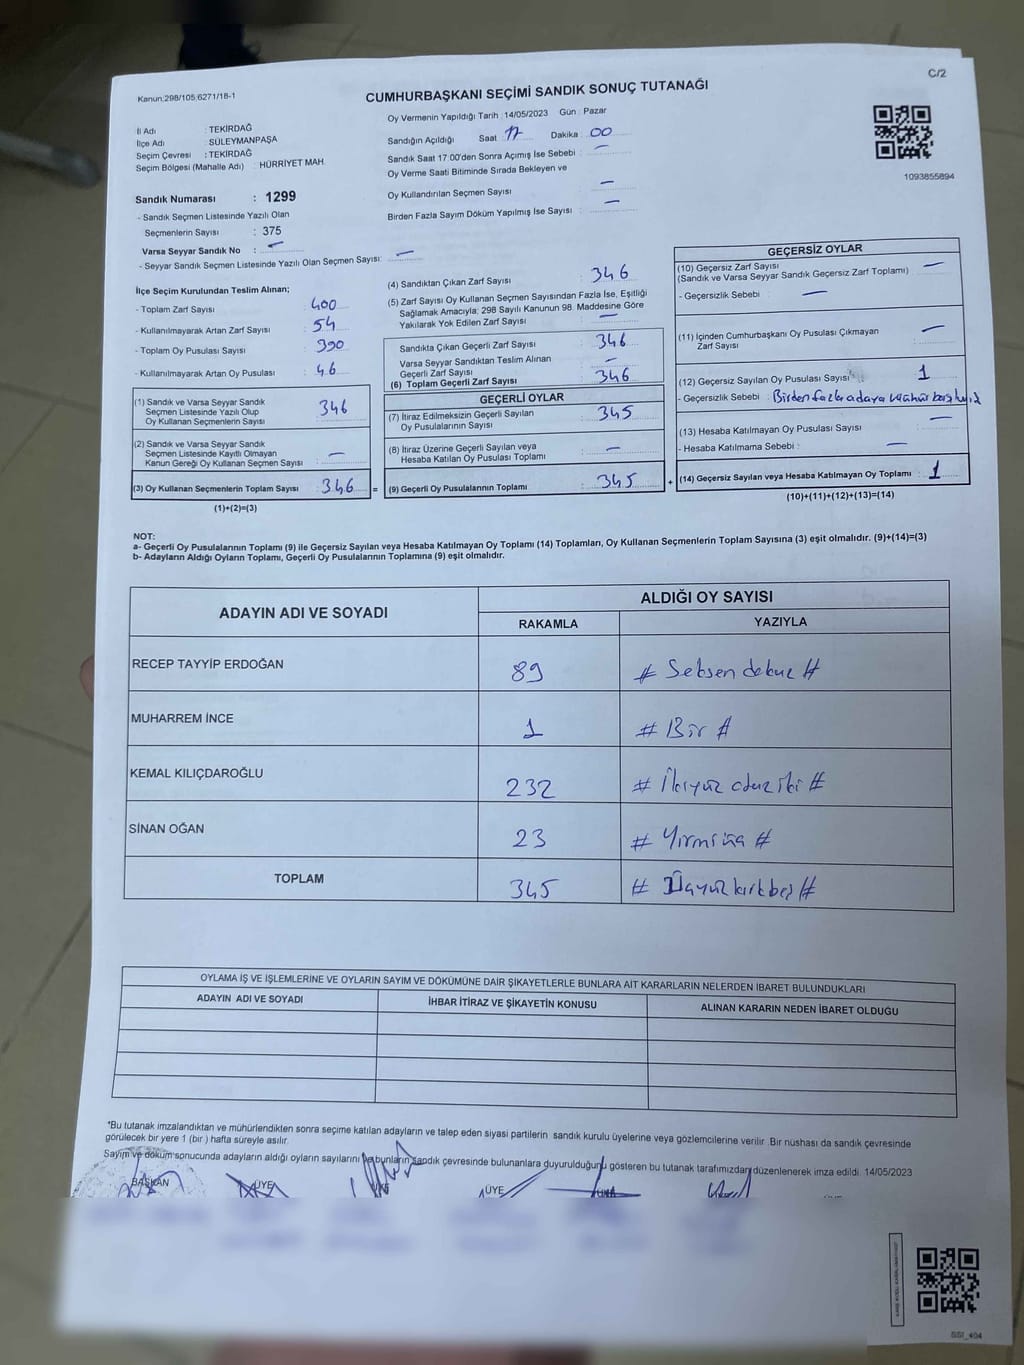 C/2
Kanun:298/105;6271/18-1
CUMHURBAŞKANI SEÇİMİ SANDIK SONUÇ TUTANAĞI
İl Adı : TEKİRDAĞ
İlçe Adı : SÜLEYMANPAŞA
Seçim Çevresi : TEKİRDAĞ
Seçim Bölgesi (Mahalle Adı) : HÜRRİYET MAH.
Sandık Numarası : 1299
- Sandık Seçmen Listesinde Yazılı Olan
Seçmenlerin Sayısı : 375
Varsa Seyyar Sandık No : —
- Seyyar Sandık Seçmen Listesinde Yazılı Olan Seçmen Sayısı: —
Oy Vermenin Yapıldığı Tarih : 14/05/2023 Gün : Pazar
Sandığın Açıldığı Saat 17 Dakika 00
Sandık Saat 17:00'den Sonra Açımış İse Sebebi : —
Oy Verme Saati Bitiminde Sırada Bekleyen ve
Oy Kullandırılan Seçmen Sayısı : —
Birden Fazla Sayım Döküm Yapılmış İse Sayısı : —
1093855894
İlçe Seçim Kurulundan Teslim Alınan;
- Toplam Zarf Sayısı : 400
- Kullanılmayarak Artan Zarf Sayısı : 54
- Toplam Oy Pusulası Sayısı : 390
- Kullanılmayarak Artan Oy Pusulası : 46
(1) Sandık ve Varsa Seyyar Sandık
Seçmen Listesinde Yazılı Olup
Oy Kullanan Seçmenlerin Sayısı : 346
(2) Sandık ve Varsa Seyyar Sandık
Seçmen Listesinde Kayıtlı Olmayan
Kanun Gereği Oy Kullanan Seçmen Sayısı : —
(3) Oy Kullanan Seçmenlerin Toplam Sayısı : 346 =
(1)+(2)=(3)
(4) Sandıktan Çıkan Zarf Sayısı : 346
(5) Zarf Sayısı Oy Kullanan Seçmen Sayısından Fazla İse, Eşitliği
Sağlamak Amacıyla; 298 Sayılı Kanunun 98. Maddesine Göre
Yakılarak Yok Edilen Zarf Sayısı : —
Sandıkta Çıkan Geçerli Zarf Sayısı : 346
Varsa Seyyar Sandıktan Teslim Alınan
Geçerli Zarf Sayısı : —
(6) Toplam Geçerli Zarf Sayısı : 346
GEÇERLİ OYLAR
(7) İtiraz Edilmeksizin Geçerli Sayılan
Oy Pusulalarının Sayısı : 345
(8) İtiraz Üzerine Geçerli Sayılan veya
Hesaba Katılan Oy Pusulası Toplamı : —
(9) Geçerli Oy Pusulalarının Toplamı : 345 +
GEÇERSİZ OYLAR
(10) Geçersiz Zarf Sayısı : —
(Sandık ve Varsa Seyyar Sandık Geçersiz Zarf Toplamı)
- Geçersizlik Sebebi : —
(11) İçinden Cumhurbaşkanı Oy Pusulası Çıkmayan
Zarf Sayısı : —
(12) Geçersiz Sayılan Oy Pusulası Sayısı : 1
- Geçersizlik Sebebi : Birden fazla adaya mühür
(13) Hesaba Katılmayan Oy Pusulası Sayısı : —
- Hesaba Katılmama Sebebi : —
(14) Geçersiz Sayılan veya Hesaba Katılmayan Oy Toplamı : 1
(10)+(11)+(12)+(13)=(14)
NOT:
a- Geçerli Oy Pusulalarının Toplamı (9) ile Geçersiz Sayılan veya Hesaba Katılmayan Oy Toplamı (14) Toplamları, Oy Kullanan Seçmenlerin Toplam Sayısına (3) eşit olmalıdır. (9)+(14)=(3)
b- Adayların Aldığı Oyların Toplamı, Geçerli Oy Pusulalarının Toplamına (9) eşit olmalıdır.
ADAYIN ADI VE SOYADI ALDIĞI OY SAYISI
RAKAMLA YAZIYLA
RECEP TAYYİP ERDOĞAN 89 # Seksen dokuz #
MUHARREM İNCE 1 # Bir #
KEMAL KILIÇDAROĞLU 232 # İkiyüz otuz iki #
SİNAN OĞAN 23 # Yirmiüç #
TOPLAM 345 # Üçyüzkırkbeş #
OYLAMA İŞ VE İŞLEMLERİNE VE OYLARIN SAYIM VE DÖKÜMÜNE DAİR ŞİKAYETLERLE BUNLARA AİT KARARLARIN NELERDEN İBARET BULUNDUKLARI
ADAYIN ADI VE SOYADI İHBAR İTİRAZ VE ŞİKAYETİN KONUSU ALINAN KARARIN NEDEN İBARET OLDUĞU
*Bu tutanak imzalandıktan ve mühürlendikten sonra seçime katılan adayların ve talep eden siyasi partilerin sandık kurulu üyelerine veya gözlemcilerine verilir. Bir nüshası da sandık çevresinde
görülecek bir yere 1 (bir ) hafta süreyle asılır.
Sayım ve döküm sonucunda adayların aldığı oyların sayılarını ve bunların sandık çevresinde bulunanlara duyurulduğunu gösteren bu tutanak tarafımızdan düzenlenerek imza edildi. 14/05/2023
BAŞKAN ÜYE ÜYE ÜYE
SSI_404